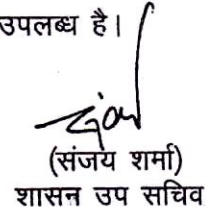 उपलब्ध है।
(संजय शर्मा)
शासन उप सचिव